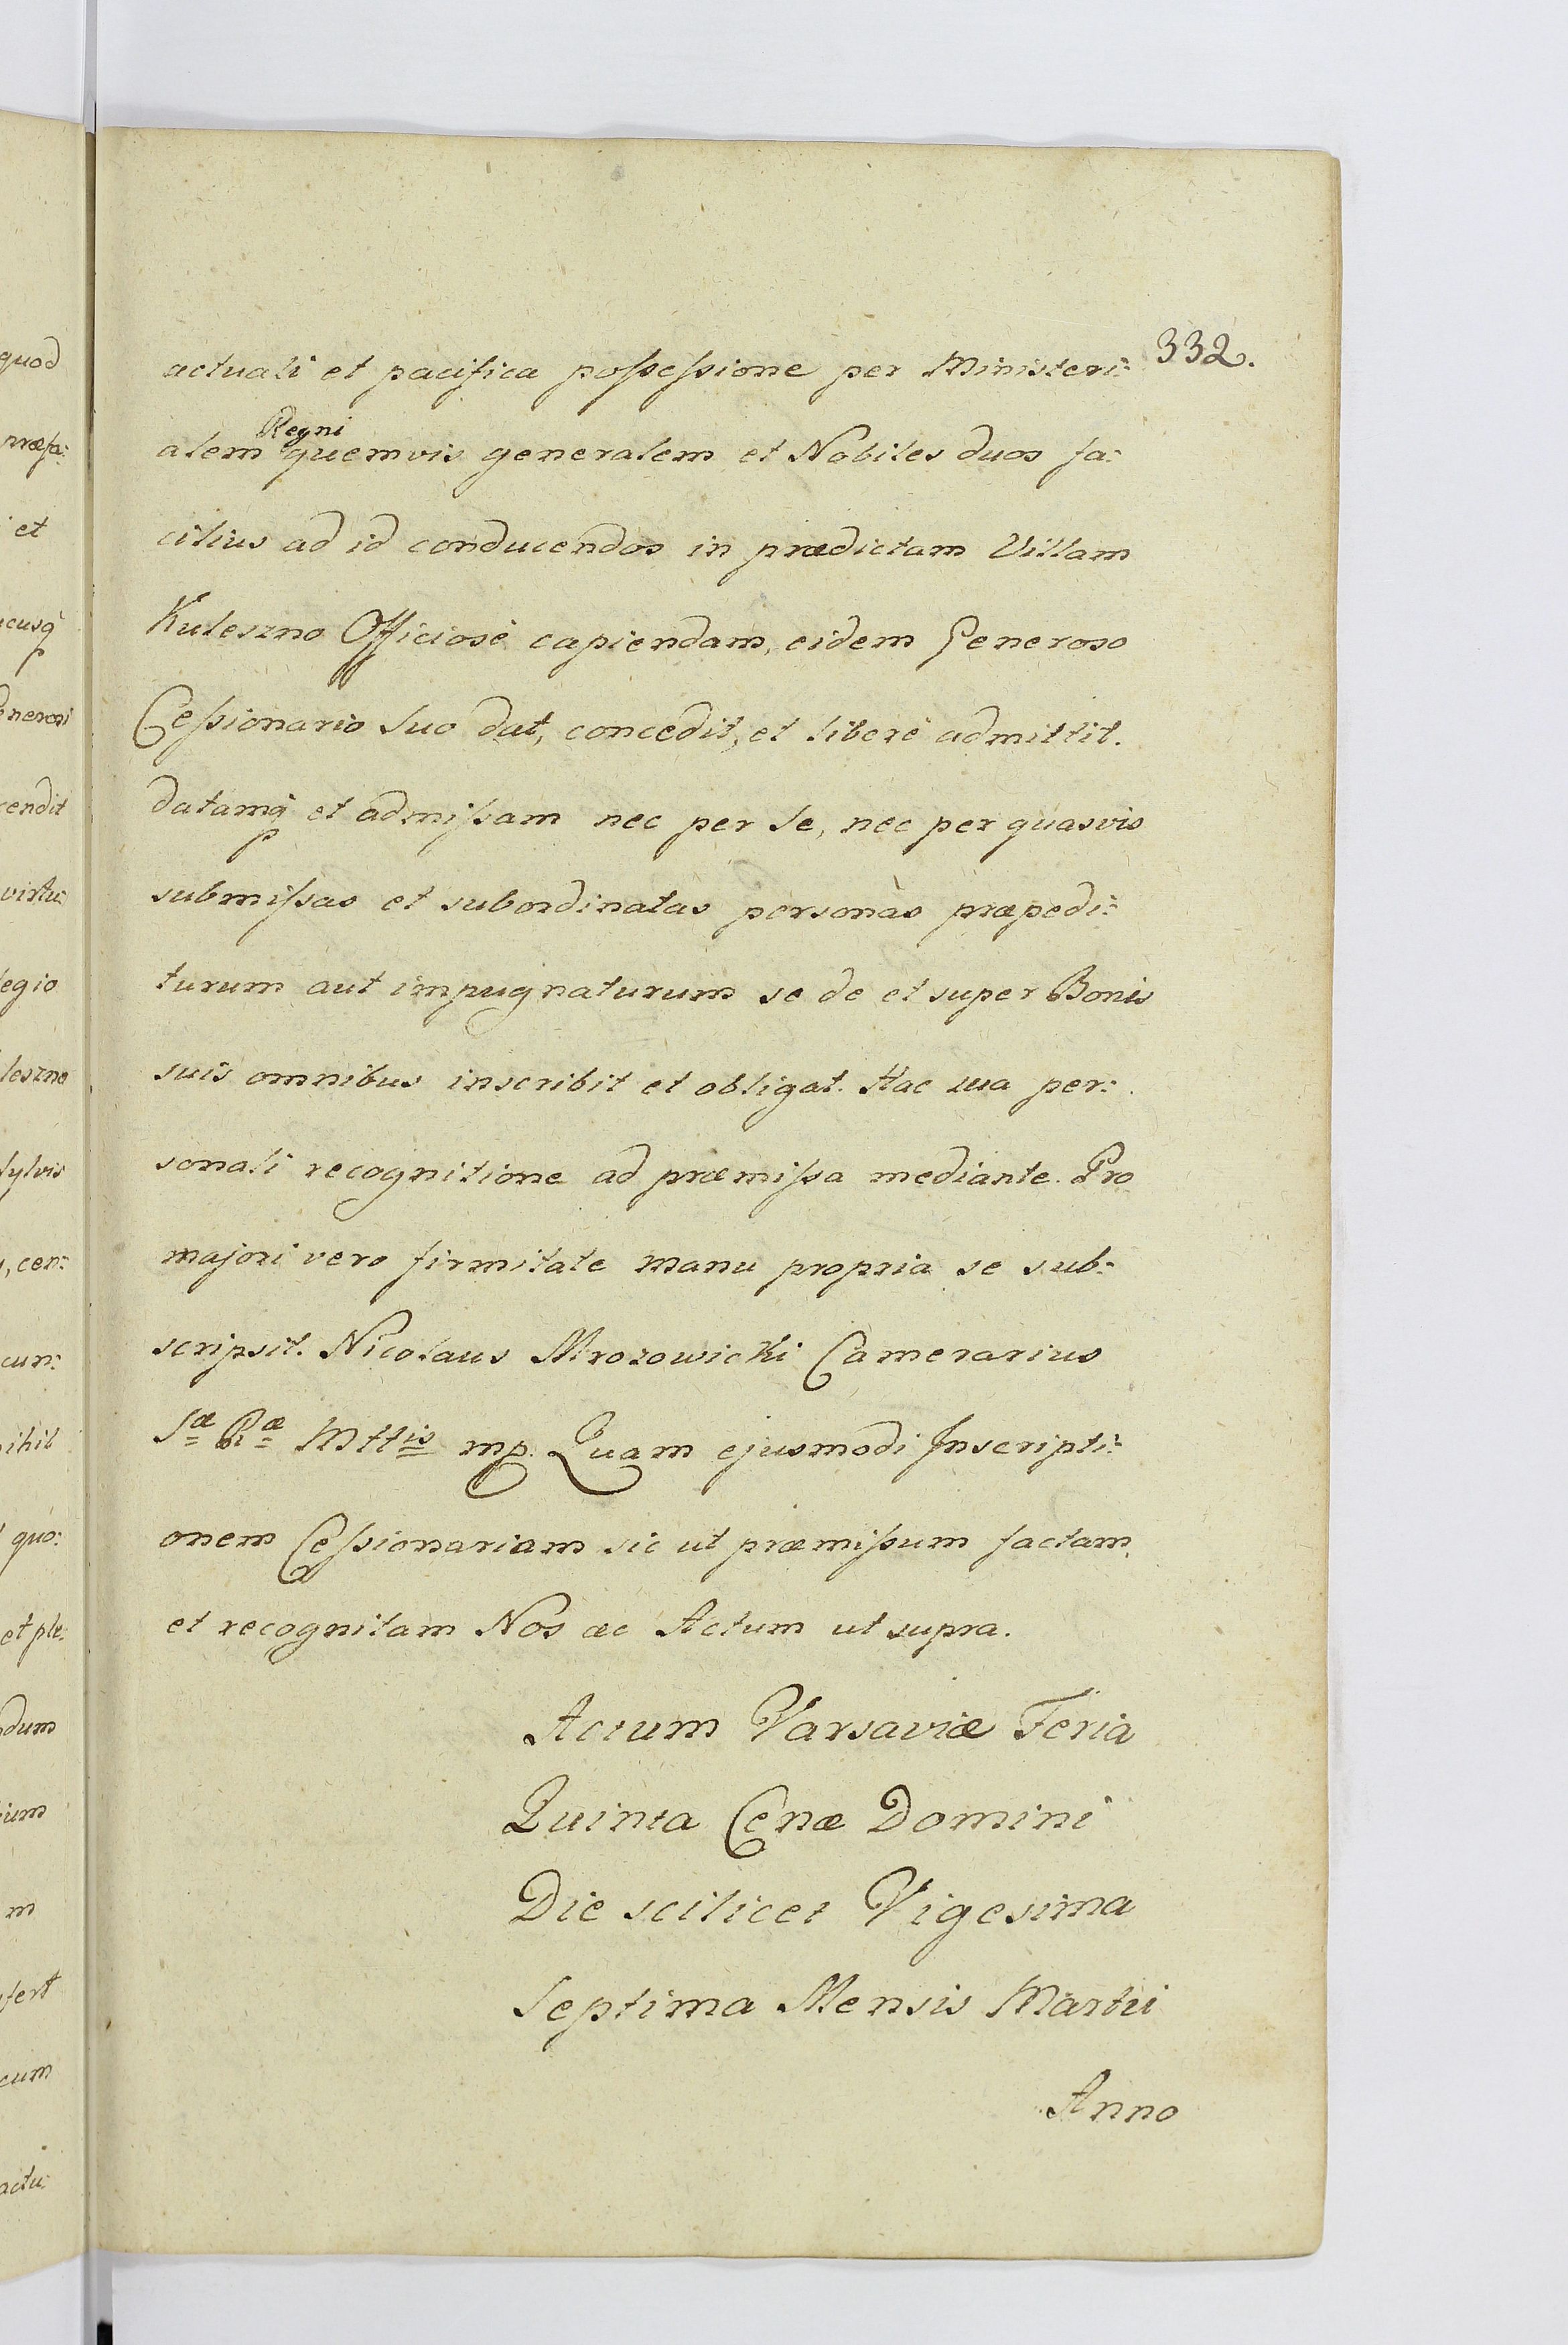 quod
præfa:
et
cusq̃
Generosi
cendit
virtu:
legio
leszno
sylvis
, cen:
cun:
nihil
quo:
et ple:
dum
ium
m
fert
cum
actu:
332.
actuali et pacifica poſseſsione per Ministeri:
Regni
alem quemvis generalem et Nobiles duos fa:
cilius ad id conducendos in prædictam Villam
Kuleszno Officiosè capiendam, eidem Generoso
Ceſsionario Suo dat, concedit, et liberè admittit.
datamq̃ et admiſsam nec per Se, nec per quasvis
submiſsas et subordinatas personas præpedi:
turum aut impugnaturum se de et super Bonis
suis omnibus inscribit et obligat. Hac sua per:
sonali recognitione ad præmiſsa mediante. Pro
majori vero firmitate manu propria se sub:
scripsit. Nicolaus Mrozowicki Camerarius
Sæ Ræ Mttis mp. Quam ejusmodi Inscripti:
onem Ceſsionariam sic ut præmiſsum factam
et recognitam Nos ac Actum ut supra.
Actum Varsaviæ Feria
Quinta Cenæ Domini
Die scilicet Vigesima
Septima Mensis Martii
Anno